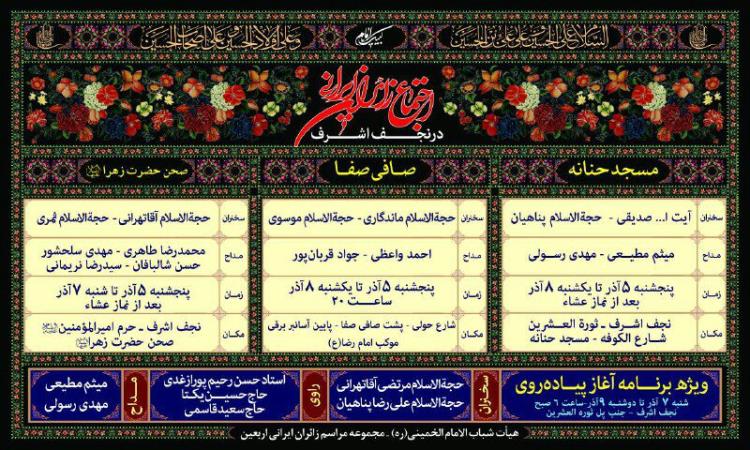 السلام علی الحسین و علی علی بن الحسین
و علی اولاد الحسین و علی اصحاب الحسین
اجتماع زائران ایرانی
در نجف اشرف
مسجد حنانه
سخنران
آیت ا... صدیقی - حجةالاسلام پناهیان
مداح
میثم مطیعی - مهدی رسولی
زمان
پنجشنبه ۵ آذر تا یکشنبه ۸ آذر
بعد از نماز عشاء
مکان
نجف اشرف - ثورة العشرین
شارع الکوفه - مسجد حنانه
صافی صفا
سخنران
حجةالاسلام ماندگاری - حجةالاسلام موسوی
مداح
احمد واعظی - جواد قربان‌پور
زمان
پنجشنبه ۵ آذر تا یکشنبه ۸ آذر
ساعت ۲۰
مکان
شارع حولی - پشت صافی صفا - پایین آسانبر برقی
موکب امام رضا(ع)
صحن حضرت زهرا
سخنران
حجةالاسلام آقاتهرانی - حجةالاسلام ثمری
مداح
محمدرضا طاهری - مهدی سلحشور
حسن شالبافان - سیدرضا نریمانی
زمان
پنجشنبه ۵ آذر تا شنبه ۷ آذر
بعد از نماز عشاء
مکان
نجف اشرف - حرم امیرالمؤمنین
صحن حضرت زهرا
ویژه برنامه آغاز پیاده‌روی
شنبه ۷ آذر تا دوشنبه ۹ آذر - ساعت ۶ صبح
نجف اشرف - جنب پل ثوره العشرین
سخنران
حجةالاسلام مرتضی آقاتهرانی
حجةالاسلام علی‌رضا پناهیان
راوی
استاد حسن رحیم پورازغدی
حاج حسین یکتا
حاج سعید قاسمی
مداح
میثم مطیعی
مهدی رسولی
هیأت شباب الامام الخمینی(ره) - مجموعه مراسم زائران ایرانی اربعین